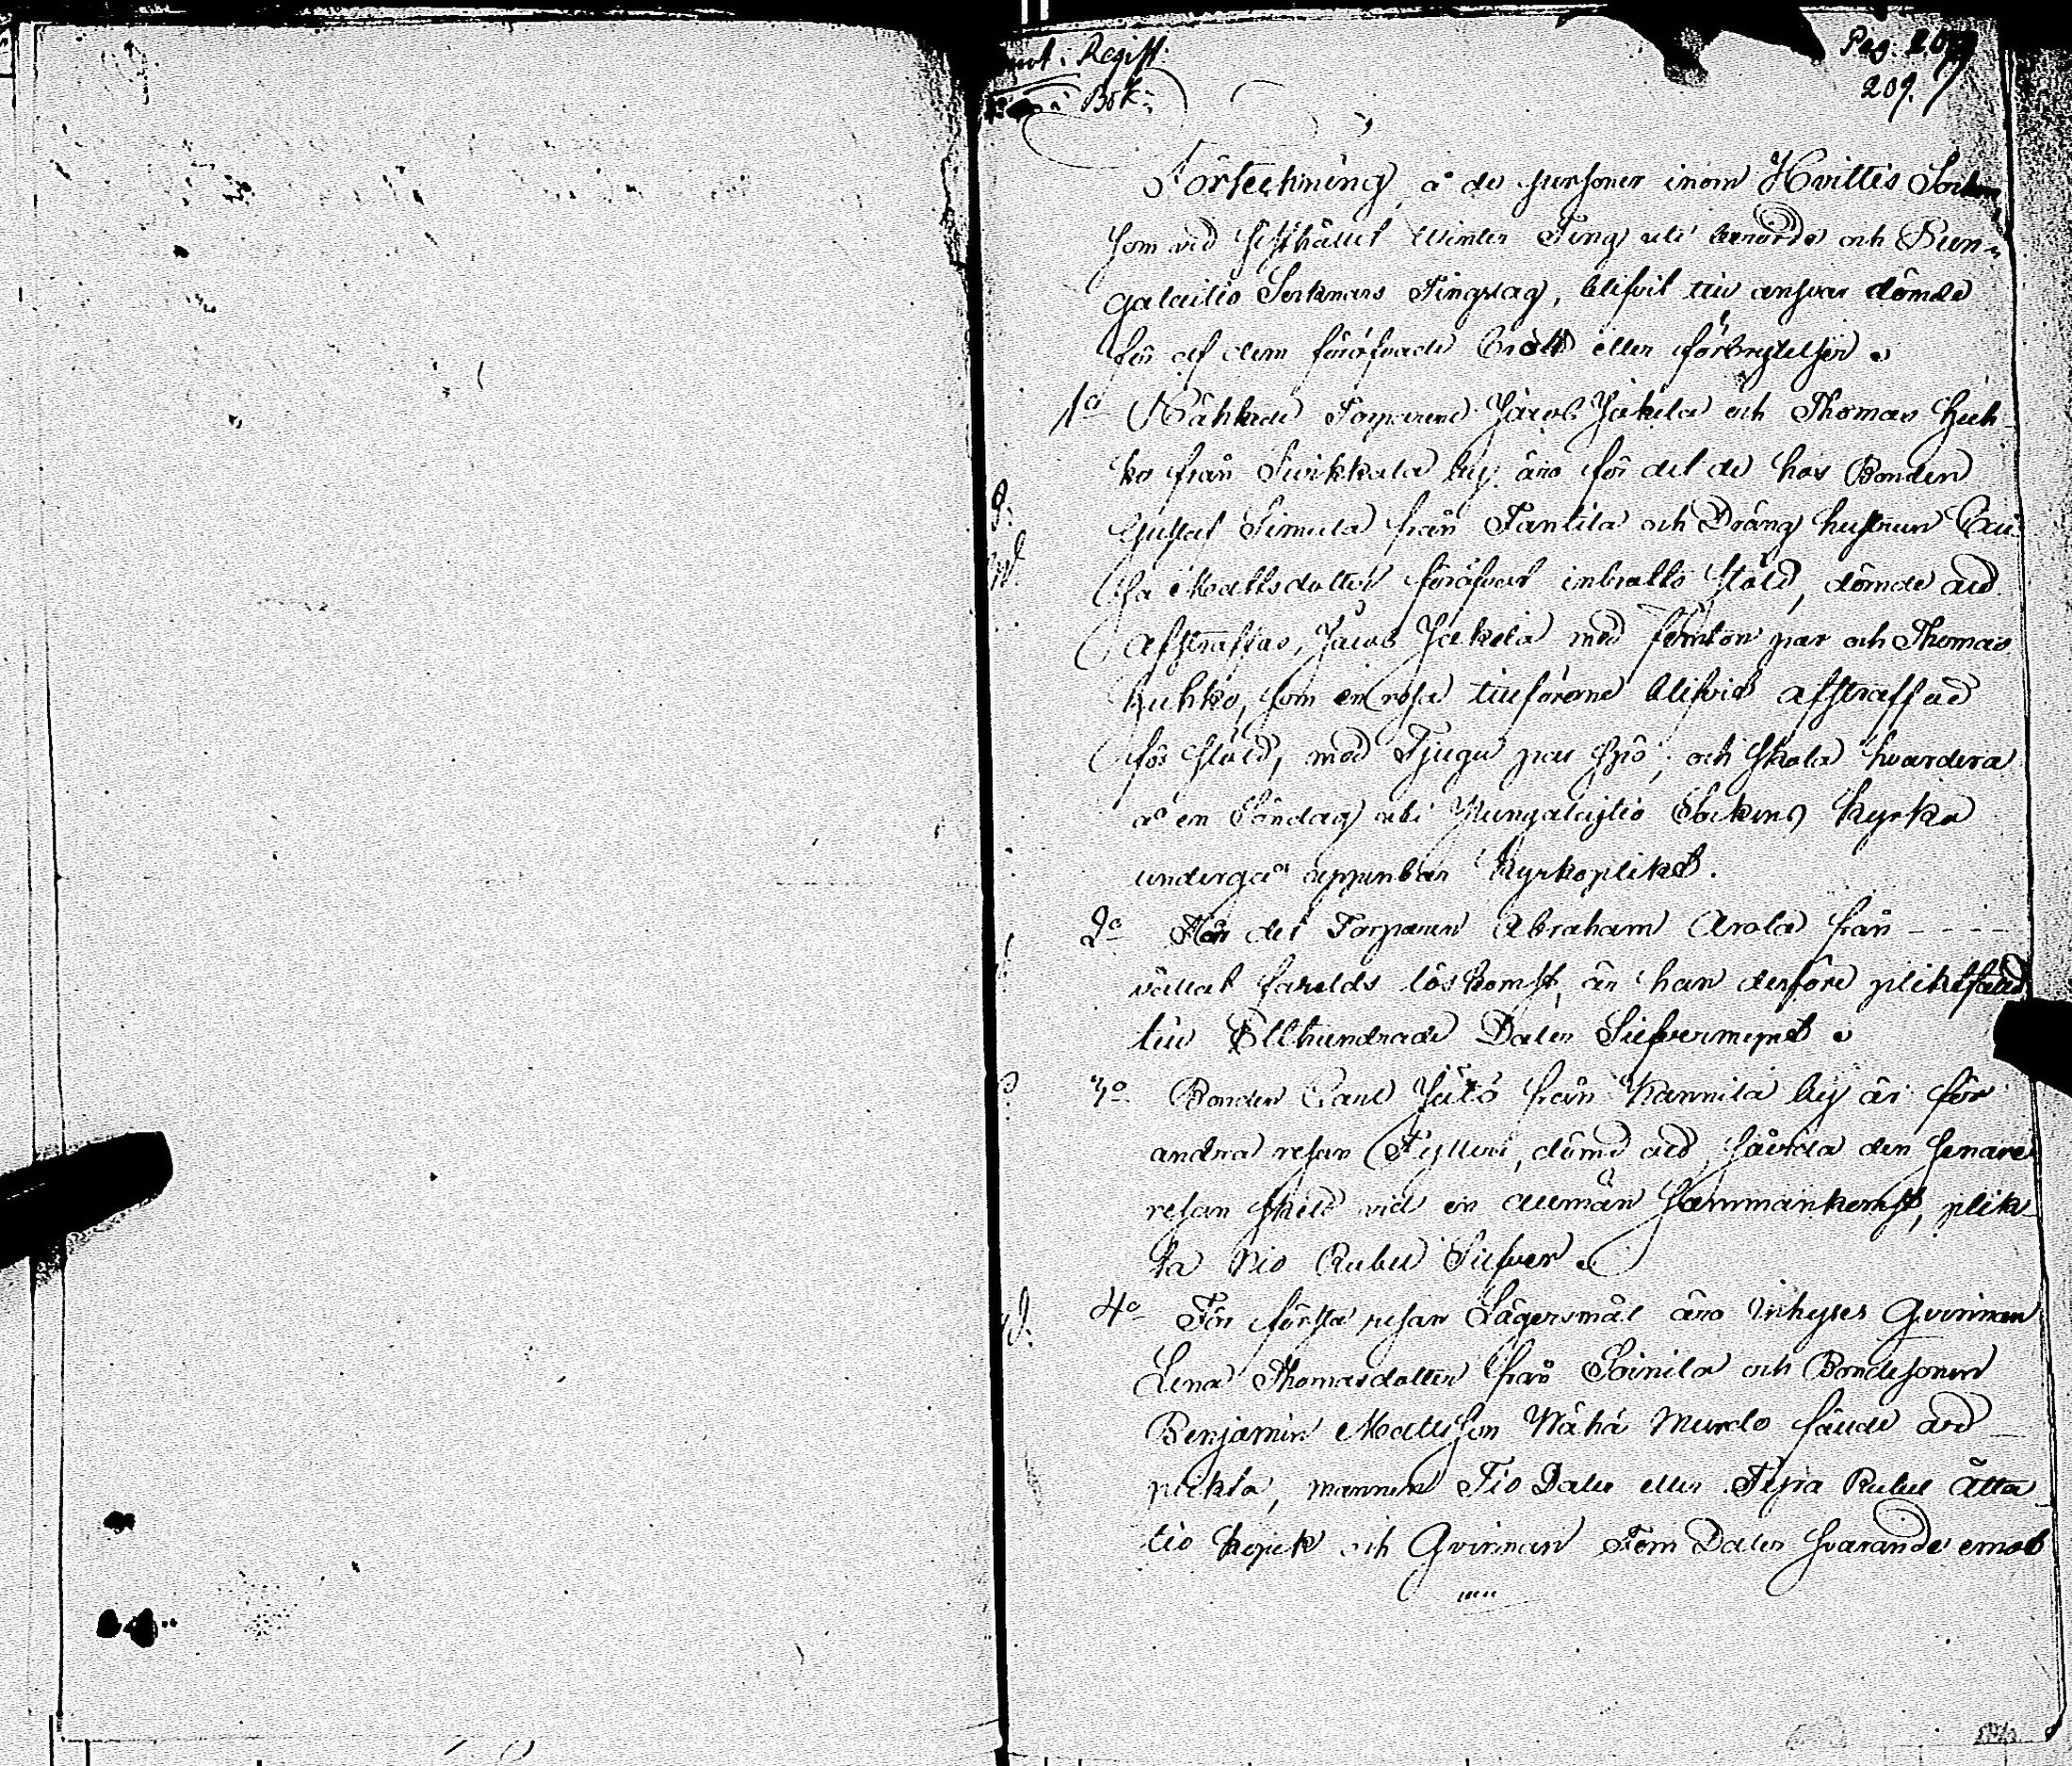 not: Regist.
Bok:
Pag. 209
209.
Förteckning å de personer inom Hvittis Socken
som vid sisthållit Winter Ting uti berörde och Kun-
galaitio Soknars Tingslag, blifvit till ansvar dömde
för af dem föröfvade brott eller förbrytelser.
1o Wählade Torparene Jacob Jakela och Thomas Huh-
ko från Suikkala by äro för det de hos Bonden
Gustaf Simula från Tantila och Dräng hustrun Cai-
sa Mattsdotter föröfvat inbrotts stöld, dömde att
afstraffas, Jacob Jakela med femton par och Thomas
Huhko, som en resa tillförene blifvit afstraffad
för stöld, med Tjugu par spö; och skola hvardera
å en Söndag uti Kungalaijtio Sockens Kyrka
undergå uppenbar Kyrkoplikt.
2o För det Torparen Abraham Arola från - - - -
vållat farelds löskomst, är han derföre pliktfäld
till Etthundrade Daler Silfvermynt.
3o Bonden Carl Jutö från Kannila by är för
andra resan Fylleri, dömd att, såvida den senare
resan skett vid en allmän sammankomst, plik-
ta Nio Rubel Silfver.
4o För första resan Lägersmål äro Inhyses Qvinnan
Lena Thomasdotter från Soinila och Bondesonen
Benjamin Mattsson Wähä Murdo fälde att
plikta, mannen Tio Daler eller Fyra Rubel Åtta-
tio kopek och Qvinnan Fem Daler svarande emot